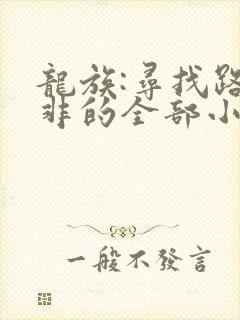 龍族:尋找路
非的全部小
一般不發言